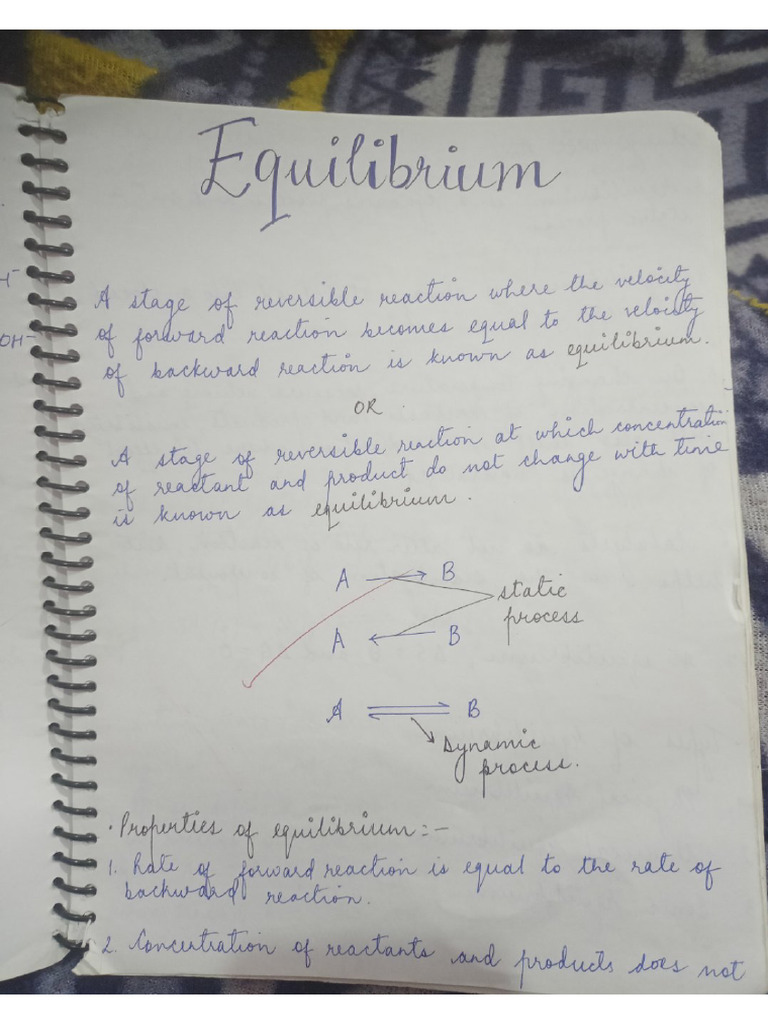 Equilibrium
H-
OH-
A stage of reversible reaction where the velocity
of forward reaction becomes equal to the velocity
of backward reaction is known as equilibrium.
OR
A stage of reversible reaction at which concentration
of reactant and product do not change with time
is known as equilibrium.
A → B
static
process
A ← B
A ⇌ B
Dynamic
process.
· Properties of equilibrium :-
1. Rate of forward reaction is equal to the rate of
backward reaction.
2. Concentration of reactants and products does not